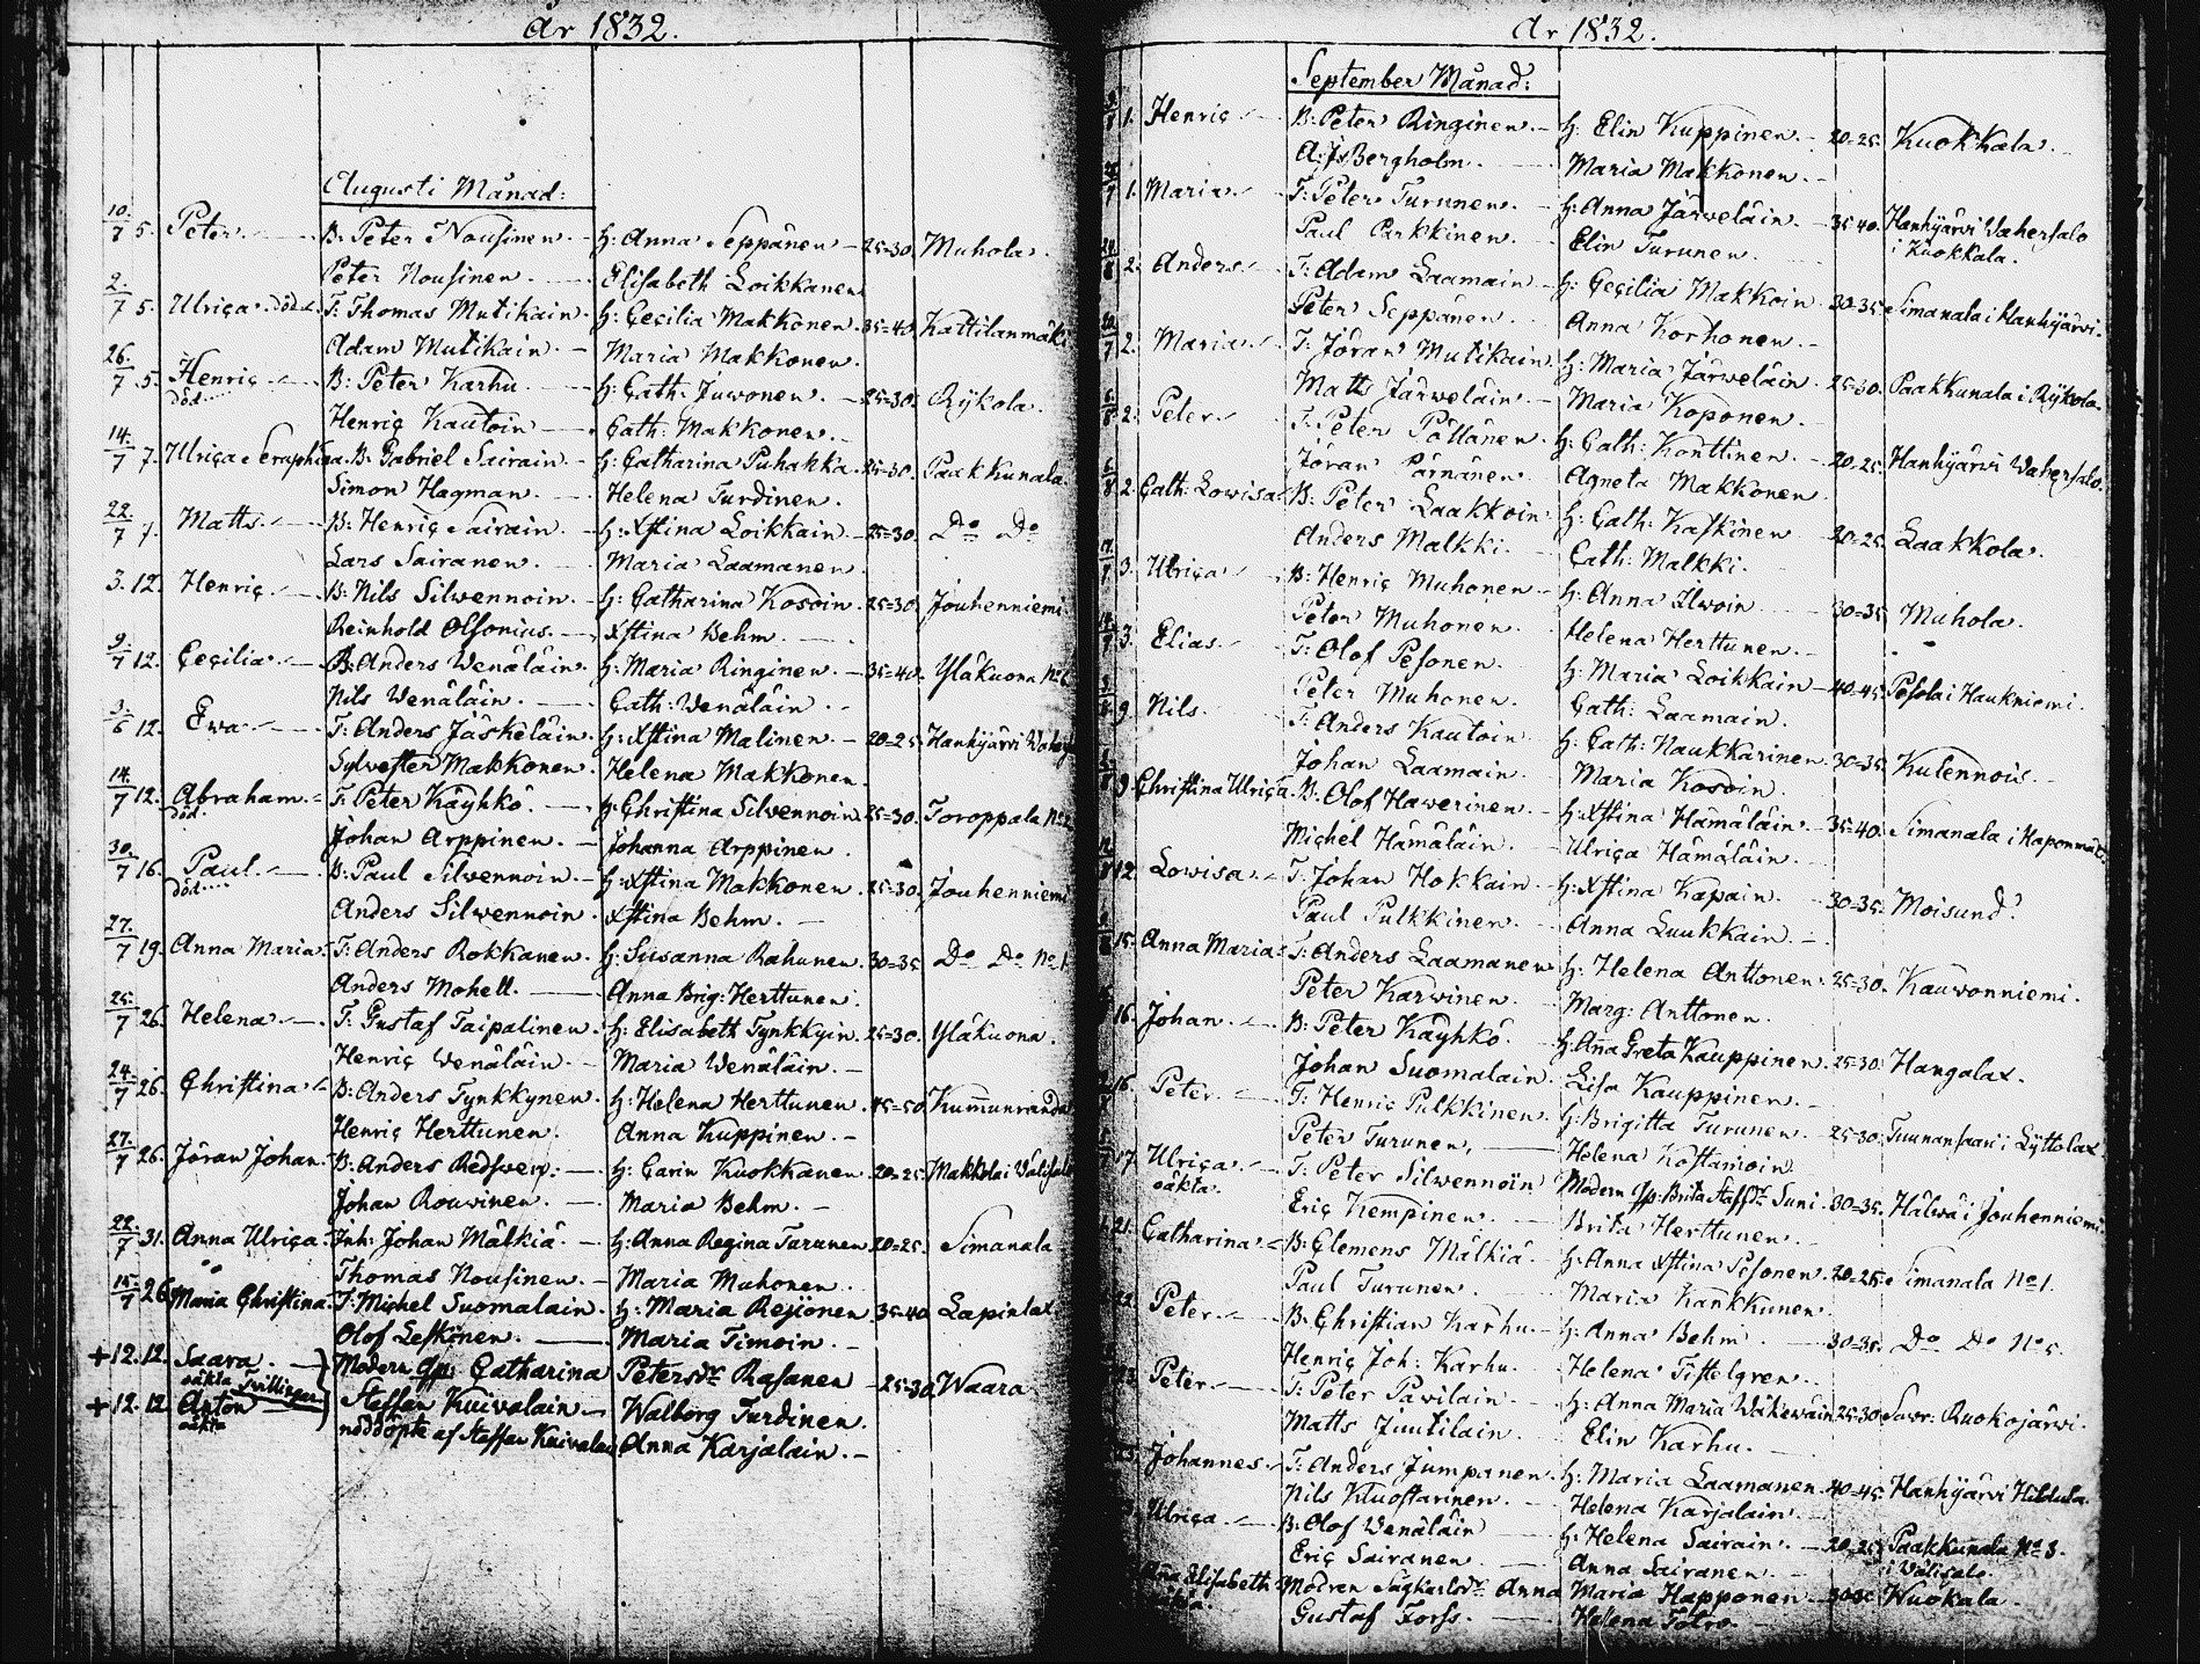 År 1832.
Augusti Månad:
10/7 5. Peter. B. Peter Nousinen. H: Anna Seppänen 25=30. Muhola.
Peter Nousinen. Elisabeth Loikkanen
2/7 5. Ulrica. död. T: Thomas Mutikain. H: Cecilia Makkonen. 35=40. Kattilanmäki
Adam Mutikain. Maria Makkonen.
26/7 5. Henric B: Peter Karhu. H: Cath: Juvonen. 25=30. Rykola.
död
Henric Kautoin Cath: Makkonen.
14/7 7. Ulrica Seraphina. B. Gabriel Sairain. H: Catharina Puhakka. 25=30. Paakkunala.
Simon Hagman. Helena Turdinen.
22/7 7. Matts. B: Henric Sairain. H: Xstina Loikkain. 25=30. Do Do
Lars Sairanen. Maria Laamanen.
3. 12. Henric B: Nils Silwennoin. H: Catharina Kosoin. 25=30. Jouhenniemi
Reinhold Olsonius. Xstina Behm.
9/7 12. Cecilia. B: Anders Wenäläin. H: Maria Ringinen. 35=40. Yläkuona No
Nils Wenäläin. Cath: Wenäläin.
3/6 12. Ewa. T: Anders Jäskeläin. H: Xstina Malinen. 20=25. Hanhijärvi
Sylvester Makkonen. Helena Makkonen.
14/7 12. Abraham. T: Peter Käyhkö. H: Christina Silwennoin. 25=30. Toroppala No 2
död.
Johan Arppinen. Johanna Arppinen.
30/7 16. Paul. B: Paul Silwennoin. H: Xstina Makkonen. 25=30. Jouhenniemi
död
Anders Silwennoin. Xstina Behm.
27/7 19. Anna Maria. T: Anders Rokkanen. H: Susanna Rahunen. 30=35 Do Do No 1.
Anders Mohell. Anna Brig: Herttunen.
25/7 26. Helena T: Gustaf Taipalinen. H: Elisabeth Tynkkyin. 25=30. Yläkuona.
Henric Wenäläin. Maria Wenäläin.
24/7 26. Christina. B: Anders Tynkkynen. H: Helena Herttunen. 45=50. Kummunranda
Henric Herttunen. Anna Kuppinen.
27/7 26. Jöran Johan. B: Anders Redswen. H: Carin Kuokkanen. 20=25. Makkola i Välisalo
Johan Rouvinen. Maria Behm.
22/7 31. Anna Ulrica. Inh: Johan Mälkiä. H: Anna Regina Turunen 20=25. Simanala
Thomas Nousinen. Maria Muhonen.
15/7 26. Maria Christina. T: Michel Suomalain. H: Maria Reijonen 35=40 Lapinlax
Olof Leskinen. Maria Timoin.
+12. 12. Saara. Modern Catharina Petersdr Rasanen 25=30. Waara
oäkta Tvillingar
+12. 12. Anton Steffan Kuivalain Walborg Turdinen.
oäkta nöddöpte af Staffan Kuivalain Anna Karjalain.
År 1832.
September Månad:
1. Henric B: Peter Ringinen. H: Elin Kuppinen. 20=25. Kuokkala.
Bergholm. Maria Makkonen.
1. Maria. T: Peter Turunen. H: Anna Järweläin. 35=40. Hanhijärvi Wahersalo
i Kuokkala.
Paul Parkkinen. Elin Turunen.
2. Anders. T: Adam Laamain H: Cecilia Makkoin 30=35. Simanala i Hanhijärvi.
Peter Seppänen. Anna Korhonen.
2. Maria. T: Jöran Mutikain. H: Maria Järweläin. 25=30. Paakkunala i Rykola.
Matts Järweläin. Maria Koponen.
2. Peter. T: Peter Pöllänen. H: Cath: Konttinen. 20=25. Hanhijärvi Wahersalo.
Jöran Pärnänen. Agneta Makkonen
2. Cath: Lowisa B: Peter Laakkoin. H: Cath: Kaskinen 20=25. Laakkola.
Anders Malkki. Cath: Malkki.
3. Ulrica B: Henric Muhonen. H: Anna Ilwoin. 30=35 Muhola.
Peter Muhonen. Helena Herttunen.
3. Elias. T: Olof Pesonen. H: Maria Loikkain 40=45. Pesola i Haukniemi.
Peter Muhonen. Cath: Laamain.
9. Nils. T: Anders Kautoin. H: Cath: Naukkarinen. 30=35. Kulennois.
Johan Laamain. Maria Kosoin.
9 Christina Ulrica. B: Olof Hawerinen. H: Xstina Hämäläin. 35=40. Simanala i Haponmäki
Michel Hämäläin. Ulrica Hämäläin.
12. Lowisa. T: Johan Hokkain. H: Xstina Kapain. 30=35. Moisund?
Paul Pulkkinen. Anna Luukkain.
15. Anna Maria T: Anders Laamanen H: Helena Anttonen. 25=30. Kauvonniemi.
Peter Karwinen. Marg: Anttonen.
16. Johan. B: Peter Käyhkö. H: Anna Greta Kauppinen. 25=30. Hangalax.
Johan Suomalain. Lisa Kauppinen.
16. Peter. T: Henric Pulkkinen. H: Brigitta Turunen. 25=30. Tuunansaari i Lyttolax
Peter Turunen, Helena Kostamoin.
17. Ulrica. T: Peter Silwennoin Modern Brita Staffsdr Suni. 30=35. Hälwä i Jouhenniemi.
oäkta.
Eric Kempinen. Brita Herttunen.
21. Catharina. B: Clemens Mälkiä. H: Anna Xstina Pesonen. 20=25. Simanala No 1.
Paul Turunen. Maria Kankkunen
22. Peter. B: Christian Karhu. H: Anna Behm 30=35. Do Do No 5.
Henric Joh: Karhu. Helena Tistelgren.
23. Peter. T: Peter Pawilain. H: Anna Maria Wäkewäin 25=30. Savr: Ruokojärwi.
Matts Juutilain. Elin Karhu.
Johannes. T: Anders Jumpanen. H: Maria Laamanen. 40=45. Hanhijärvi Hildula.
Nils Kluostarinen. Helena Karjalain.
Ulrica. B: Olof Wenäläin H: Helena Sairain. 20=25. Paakkunala No 3.
i Wälisalo.
Eric Sairanen. Anna Sairanen.
Anna Elisabeth Modren Anna Maria Happonen. Wuokala.
Gustaf Forss. Helena Tolvo.